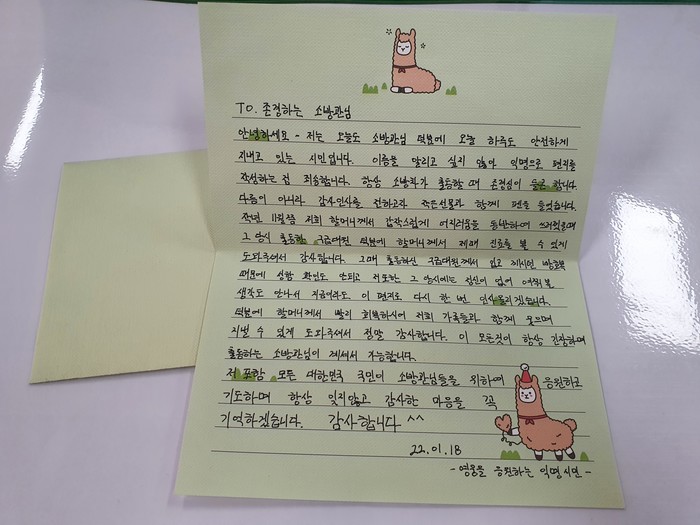 TO. 존경하는 소방관님
안녕하세요~ 저는 오늘도 소방관님 덕분에 오늘 하루도 안전하게
지내고 있는 시민입니다. 이름을 알리고 싶지 않아 익명으로 편지를
작성하는 점 죄송합니다. 항상 소방차가 출동할 때 존경심이 들곤 합니다.
다름이 아니라 감사인사를 전하고자 작은선물과 함께 펜을 들었습니다.
작년 11월쯤 저희 할머니께서 갑작스럽게 어지러움을 동반하여 쓰러졌을때
그 당시 출동한 구급대원 덕분에 할머니께서 제때 진료를 볼 수 있게
도와주셔서 감사합니다. 그때 출동하신 구급대원께서 입고 계시던 방호복
때문에 성함 확인도 안되고 저또한 그 당시에는 정신이 없어 여쭤볼
생각도 안나서 지금이라도 이 편지로 다시 한 번 인사올리겠습니다.
덕분에 할머니께서 빨리 회복하시어 저희 가족들과 함께 웃으며
지낼 수 있게 도와주셔서 정말 감사합니다. 이 모든것이 항상 긴장하며
출동하는 소방관님이 계셔서 가능합니다.
저 포함 모든 대한민국 국민이 소방관님들을 위하여 응원하고
기도하며 항상 잊지않고 감사한 마음을 꼭
기억하겠습니다. 감사합니다 ^^
22.01.18
- 영웅을 응원하는 익명시민 -